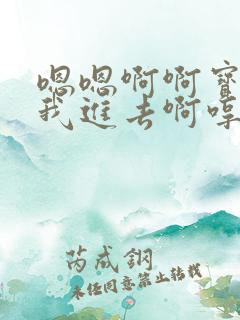 嗯嗯啊啊寶
我進去啊哼
芮成鋼
未經同意禁止轉載